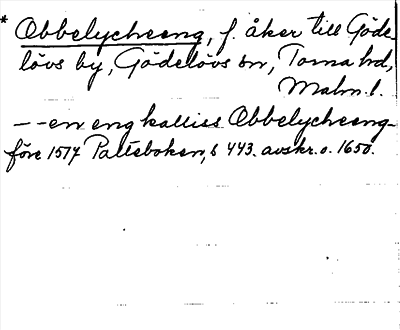 * Obbelycheeng, f. åker till Göde-
lövs by, Gödelövs sn, Torna hd,
Malm. l.
- - en eng kalliss Obbelycheeng -
före 1517 Palteboken, s 443. avskr. o. 1650.